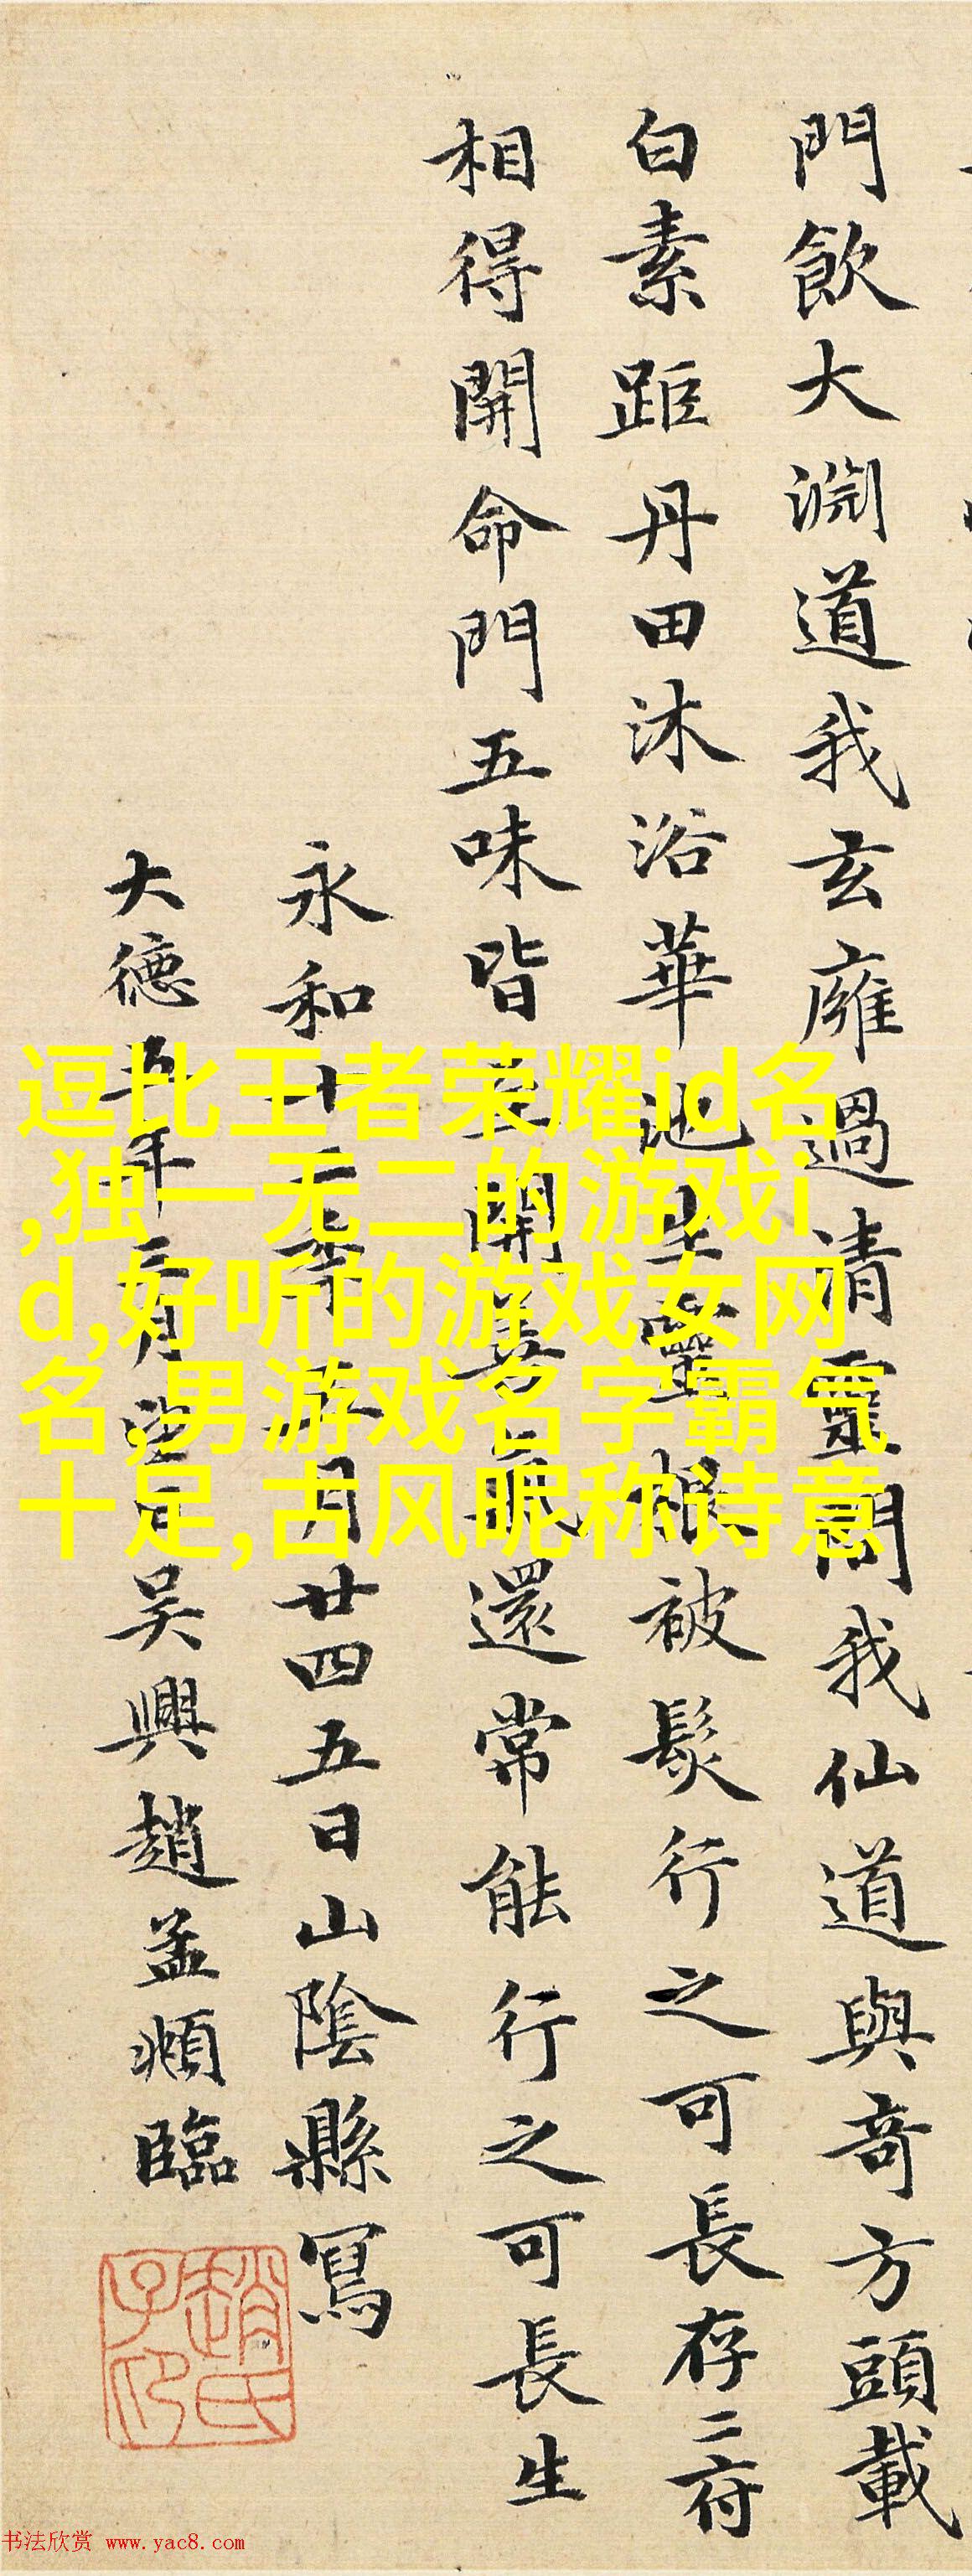 門飲大淵道我玄廱過清靈問我仙道與奇方頭載
白素距丹田沐浴華池生靈根被髮行之可長存二府
相得開命門五味皆至開善氣還常能行之可長生
永和十二年五月廿四五日山陰縣寫
大德五年三月望日吴興趙孟頫臨
趙氏子印
逗比王者荣耀id名
,独一无二的游戏i
d,好听的游戏女网
名,男游戏名字霸气
十足,古风昵称诗意
书法欣赏 www.yac8.com